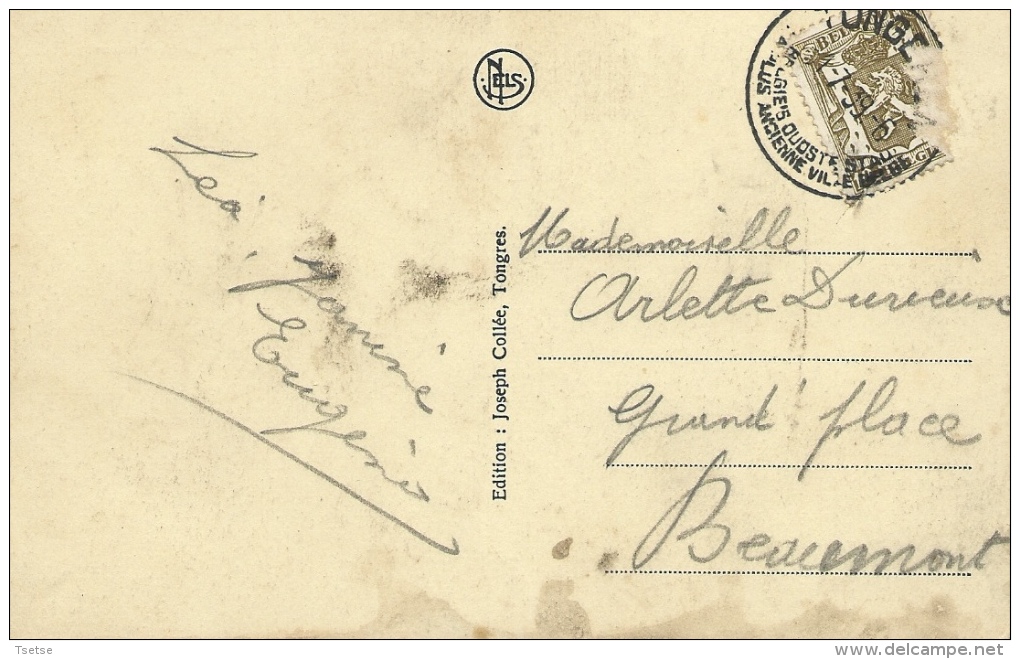 NELS
TONGE
BELGIE'S OUDSTE STAD
PLUS ANCIENNE VILLE BELGE
Léa, Janine
Eugénie
Edition : Joseph Collée, Tongres.
Mademoiselle
Arlette Durieux
Grand' place
Beaumont
Tsetse
delcampe.net